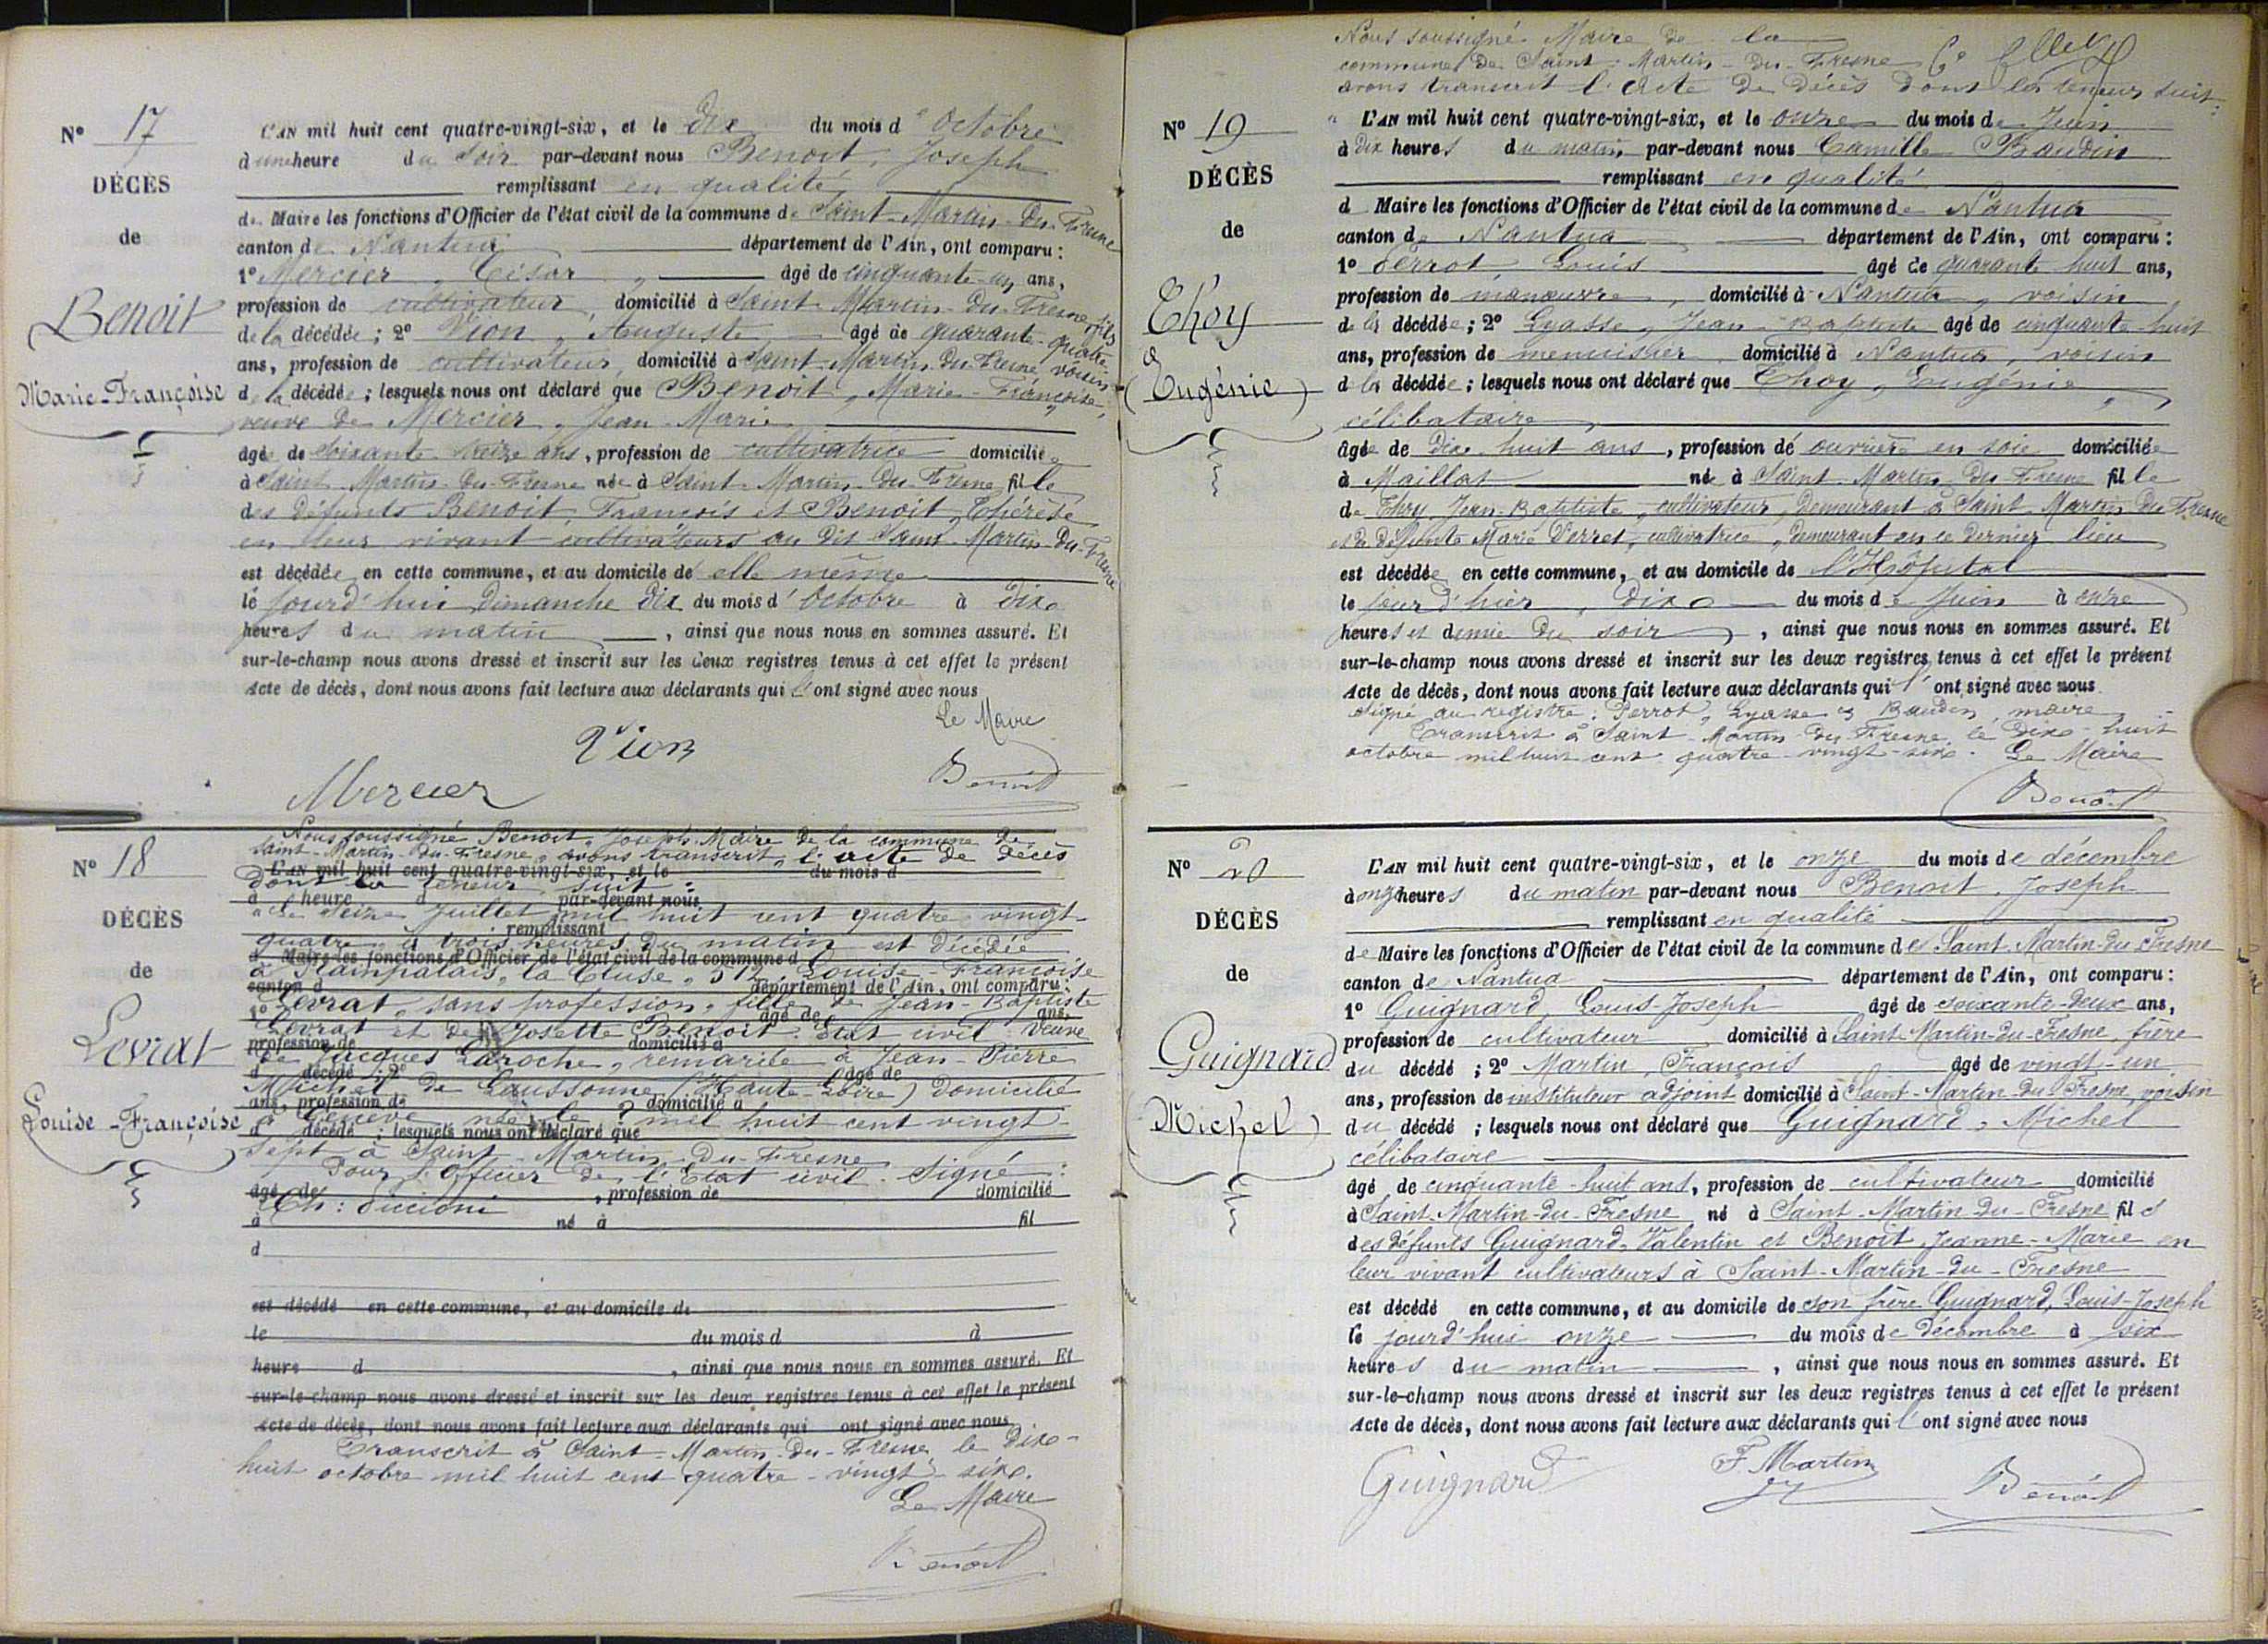 N° 17
DÉCÈS
de
Benoit
Marie-Françoise
L'AN mil huit cent quatre-vingt-six, et le dix du mois d'Octobre
à une heure du soir par-devant nous Benoit, Joseph
remplissant en qualité
de Maire les fonctions d'Officier de l'état civil de la commune de Saint-Martin-du-Fresne
canton de Nantua département de l'Ain, ont comparu :
1° Mercier, César, âgé de cinquante-un ans,
profession de cultivateur, domicilié à Saint-Martin-du-Fresne, fils
de la décédée ; 2° Vion, Auguste âgé de quarante-quatre
ans, profession de cultivateur, domicilié à Saint-Martin-du-Fresne, voisin
de la décédée ; lesquels nous ont déclaré que Benoit, Marie-Françoise,
veuve de Mercier, Jean-Marie
âgée de soixante-seize ans, profession de cultivatrice domiciliée
à Saint-Martin-du-Fresne née à Saint-Martin-du-Fresne fille
des défunts Benoit, François et Benoit, Thérèse
en leur vivant cultivateurs au dit Saint-Martin-du-Fresne
est décédée en cette commune, et au domicile de elle même
le jourd'hui Dimanche dix du mois d'Octobre à dix
heures du matin, ainsi que nous nous en sommes assuré. Et
sur-le-champ nous avons dressé et inscrit sur les deux registres tenus à cet effet le présent
Acte de décès, dont nous avons fait lecture aux déclarants qui l'ont signé avec nous
Le Maire
Vion
Benoit
Mercier
N° 18
DÉCÈS
de
Levrat
Louise-Françoise
Nous soussigné Benoit, Joseph Maire de la commune de
Saint-Martin-du-Fresne, avons transcrit, l'acte de décès
L'AN mil huit cent quatre-vingt-six, et le du mois d
dont la teneur suit :
à heure d par-devant nous
"Le seize Juillet mil huit cent quatre-vingt-
remplissant
quatre à trois heures du matin est décédée
d Maire les fonctions d'Officier de l'état civil de la commune d
à Plainpalais, la Cluse, 512, Louise-Françoise
canton d département de l'Ain, ont comparu :
Levrat, sans profession, fille de Jean-Baptiste
1° âgé de ans,
Levrat et de Josette Benoit. Etat civil : Veuve
profession de domicilié à
de Jacques Laroche, remariée à Jean-Pierre
d décédé ; 2° âgé de
Michel de Laussonne (Haute-Loire) domicilié
ans, profession de domicilié à
à Genève née le ? mil huit cent vingt-
d décédé ; lesquels nous ont déclaré que
sept à Saint-Martin-du-Fresne
Pour l'Officier de l'Etat civil. Signé :
âgé de , profession de domicilié
à né à fil
d
est décédé en cette commune, et au domicile de
le du mois d à
heure d , ainsi que nous nous en sommes assuré. Et
sur-le-champ nous avons dressé et inscrit sur les deux registres tenus à cet effet le présent
Acte de décès, dont nous avons fait lecture aux déclarants qui ont signé avec nous
Transcrit à Saint-Martin-du-Fresne, le dix-
huit octobre mil huit cent quatre-vingt-six.
Le Maire
Benoit
Nous soussigné Maire de la
commune de Saint-Martin-du-Fresne
avons transcrit l'acte de décès dont la teneur suit :
N° 19
DÉCÈS
de
Thoy
Eugénie
"L'AN mil huit cent quatre-vingt-six, et le onze du mois de Juin
à dix heures du matin par-devant nous Camille Baudin
remplissant en qualité
d Maire les fonctions d'Officier de l'état civil de la commune de Nantua
canton de Nantua département de l'Ain, ont comparu :
1° Perrot, Louis âgé de quarante huit ans,
profession de manœuvre, domicilié à Nantua, voisin
de la décédée ; 2° Lyasse, Jean-Baptiste âgé de cinquante-huit
ans, profession de menuisier domicilié à Nantua, voisin
de la décédée ; lesquels nous ont déclaré que Thoy, Eugénie,
célibataire,
âgée de dix-huit ans, profession de ouvrière en soie domiciliée
à Maillat née à Saint-Martin-du-Fresne fille
de Thoy, Jean-Baptiste, cultivateur, demeurant à Saint-Martin-du-Fresne
et de défunte Marie Verret, cultivatrice, demeurant en ce dernier lieu
est décédée en cette commune, et au domicile de l'Hôpital
le jour d'hier, dix du mois de Juin à onze
heures et demie du soir, ainsi que nous nous en sommes assuré. Et
sur-le-champ nous avons dressé et inscrit sur les deux registres tenus à cet effet le présent
Acte de décès, dont nous avons fait lecture aux déclarants qui l'ont signé avec nous
Signé au registre : Perrot, Lyasse et Baudin, maire
Transcrit à Saint-Martin-du-Fresne, le dix-huit
octobre mil huit cent quatre-vingt-six. Le Maire
Benoit
N° 20
DÉCÈS
de
Guignard
Michel
L'AN mil huit cent quatre-vingt-six, et le onze du mois de décembre
à onze heures du matin par-devant nous Benoit, Joseph
remplissant en qualité
de Maire les fonctions d'Officier de l'état civil de la commune de Saint-Martin-du-Fresne
canton de Nantua département de l'Ain, ont comparu :
1° Guignard, Louis-Joseph âgé de soixante-deux ans,
profession de cultivateur domicilié à Saint-Martin-du-Fresne, frère
du décédé ; 2° Martin, François âgé de vingt-un
ans, profession de instituteur adjoint domicilié à Saint-Martin-du-Fresne, voisin
du décédé ; lesquels nous ont déclaré que Guignard, Michel
célibataire
âgé de cinquante-huit ans, profession de cultivateur domicilié
à Saint-Martin-du-Fresne né à Saint-Martin-du-Fresne fils
des défunts Guignard, Valentin et Benoit, Jeanne-Marie en
leur vivant cultivateurs à Saint-Martin-du-Fresne
est décédé en cette commune, et au domicile de son frère Guignard, Louis-Joseph
le jourd'hui onze du mois de décembre à six
heures du matin, ainsi que nous nous en sommes assuré. Et
sur-le-champ nous avons dressé et inscrit sur les deux registres tenus à cet effet le présent
Acte de décès, dont nous avons fait lecture aux déclarants qui l'ont signé avec nous
Guignard F. Martin Benoit